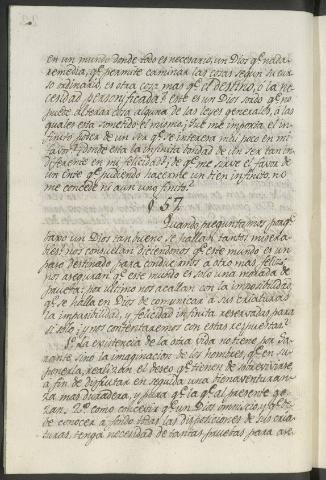 en un mundo donde todo es necesario, un Dios q.e nada
remedia, q.e permite caminar las cosas segun su cur-
so ordinario, es otra cosa mas q.e el destino, ó la ne-
cesidad personificada? Este es un Dios sordo q.e no
puede alterar cosa alguna de las leyes generales, á las
quales esta sometido él mismo. Que me importa el in-
finito poder de un ser q.e se interesa mui poco en mi
favor? donde esta la infinita bondad de un ser tan in-
diferente en mi felicidad? de q.e me sirve el favor de
un Ente q.e pudiendo hacerme un bien infinito, no
me concede ni aun uno finito?
§. 57.
Quando preguntamos porq.e
baxo un Dios tan bueno se hallan tantos misera-
bles: nos consuelan diciendonos q.e este mundo es un
pase destinado para conducirnos á otro mas feliz:
nos aseguran q.e este mundo es solo una morada de
prueba: por ultimo nos acallan con la imposibilidad
q.e se halla en Dios de comunicar á sus criaturas
la impasibilidad, y felicidad infinita reservadas para
si solo; y nos contentaremos con estas respuestas?
1.o La existencia de la otra vida no tiene por ga-
rante, sino la imaginacion de los hombres, q.e en su-
ponerla, realizan el deseo q.e tienen de sobrevivirse,
á fin de disfrutar en seguida una bienaventuran-
za mas duradera, y pura q.e la q.e al presente go-
zan. 2.o como concevir q.e un Dios omniscio, y q.e
de conocer á fondo todas las disposiciones de sus cria-
turas, tenga necesidad de tantas pruebas para ase-